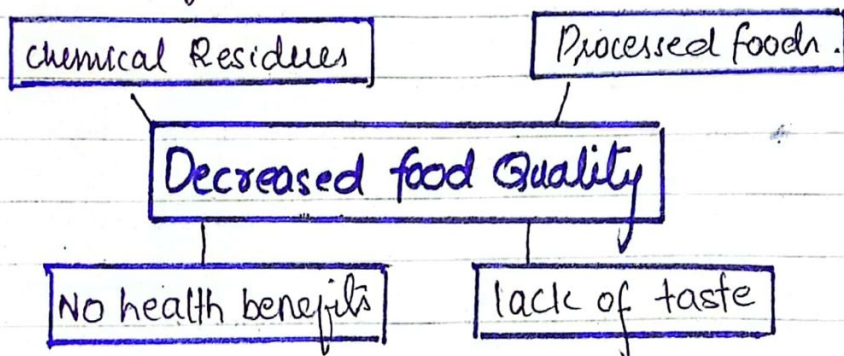 Chemical Residues
Processed foods.
Decreased food Quality
No health benefits
lack of taste